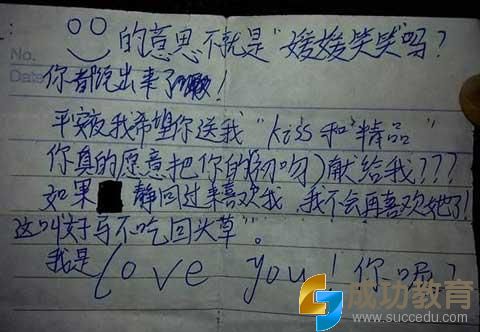 No.
的意思不就是“嫒嫒笑笑”吗?
Date
你都说出来了!
平安夜我希望你送我“kiss和精品”
你真的愿意把你的(初吻)献给我???
如果 静回过来喜欢我,我不会再喜欢她了!
这叫“好马不吃回头草”。
我是 love you! 你呢?
成功教育
www.succedu.com